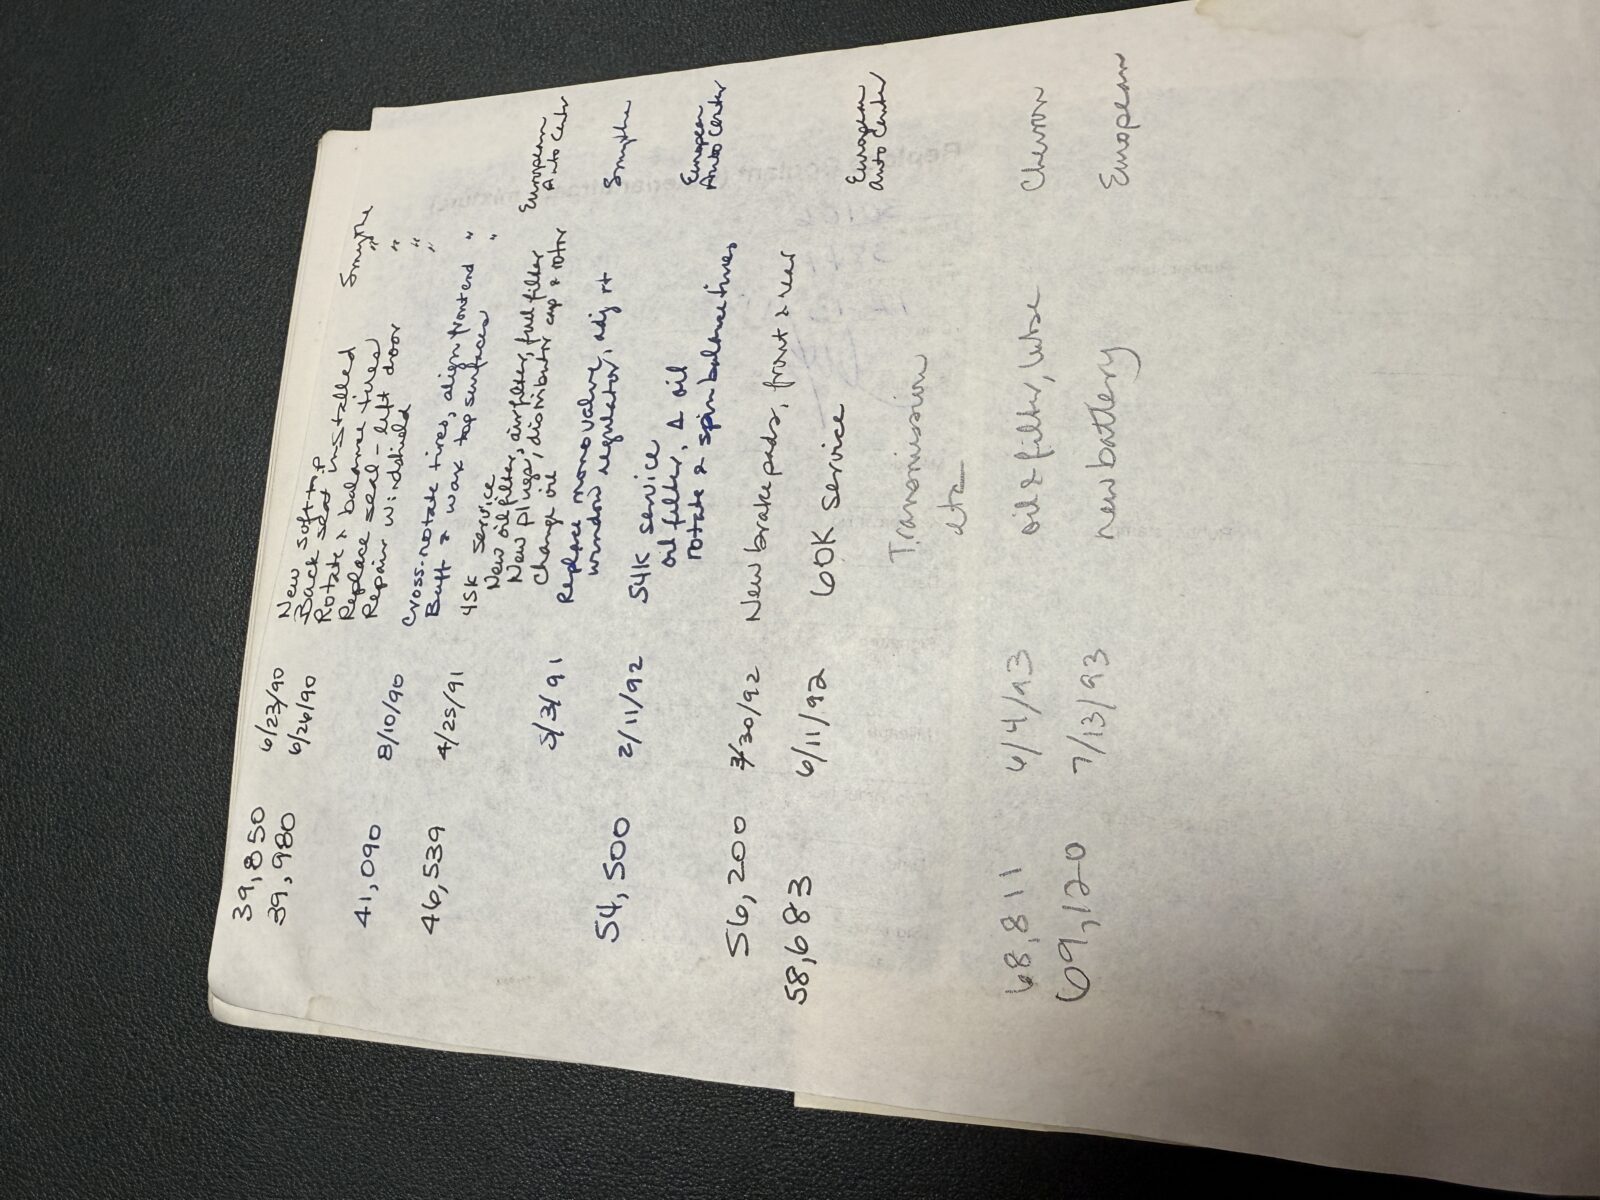 39,850 6/23/90 New soft top
39,980 6/26/90 Back seat installed Smythe
Rotate & balance tires "
Replace seal - left door "
Repair windshield "
41,090 8/10/90 Cross-rotate tires, align front end "
Buff & wax top surfaces "
46,539 4/25/91 45K service
New oil filter, air filter, fuel filter European
New plugs, distributor cap & rotor Auto Center
Change oil
5/3/91 Replace monovalve, adj rt Smythe
window regulator
54,500 2/11/92 54K service European
oil filter, Δ oil Auto Center
rotate & spin balance tires
56,200 3/30/92 New brake pads, front & rear
58,683 6/11/92 60K service European
Auto Center
Transmission
etc
68,811 6/4/93 oil & filter, lube Chevron
69,120 7/13/93 new battery European